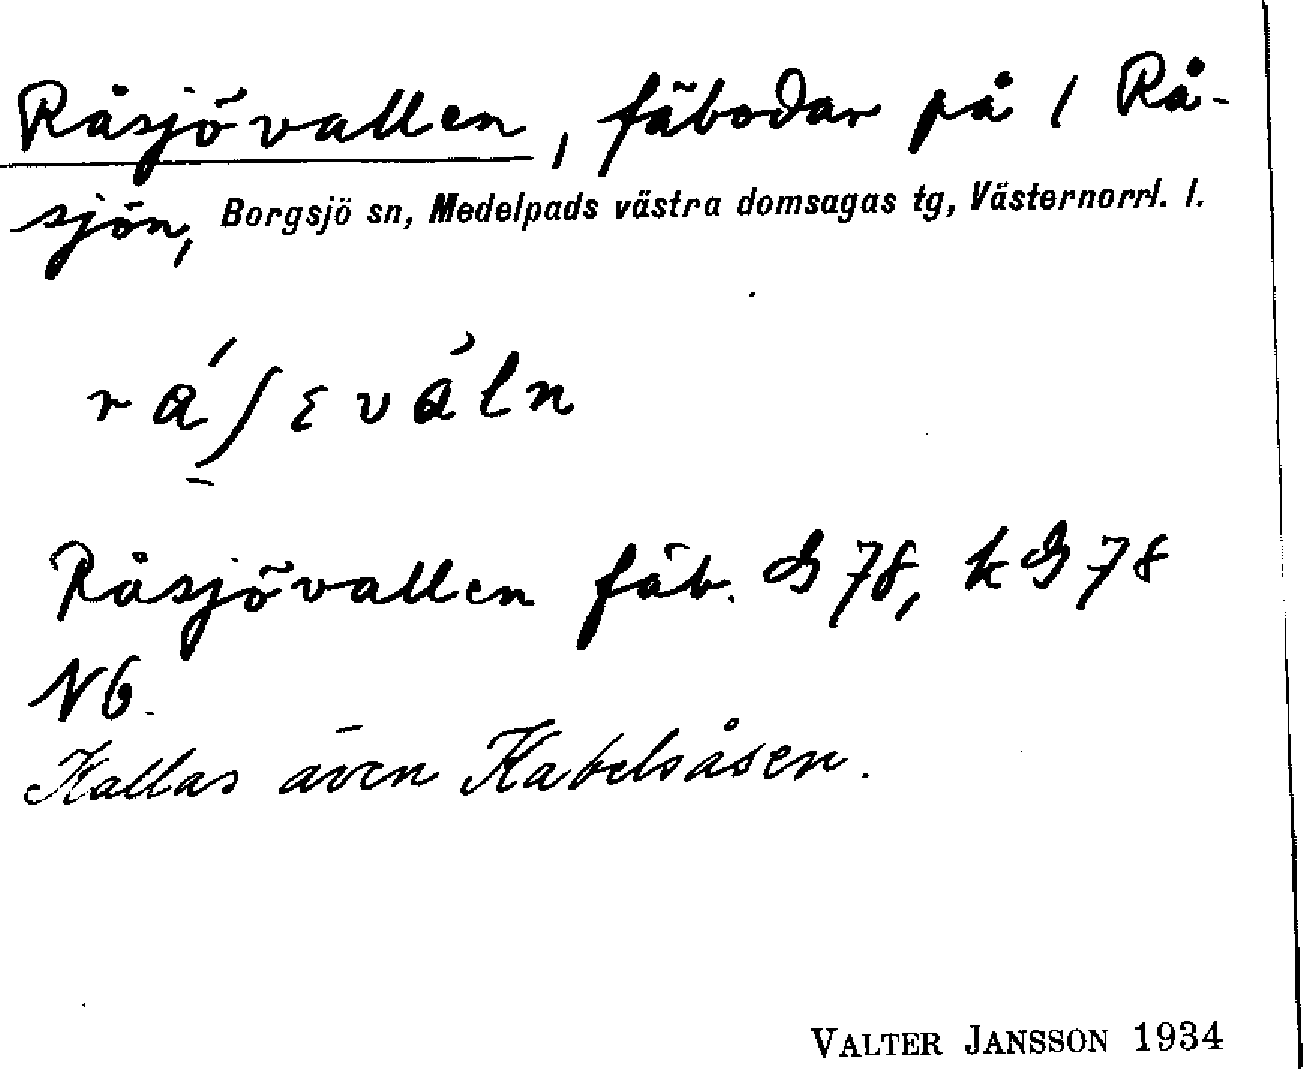 Råsjövallen, fäbodar på 1 Rå-
sjön, Borgsjö sn, Medelpads västra domsagas tg, Västernorrl. l.
Råsjövallen fäb. G 78, k G 78
N6.
Kallas även Kabelsåsen.
VALTER JANSSON 1934